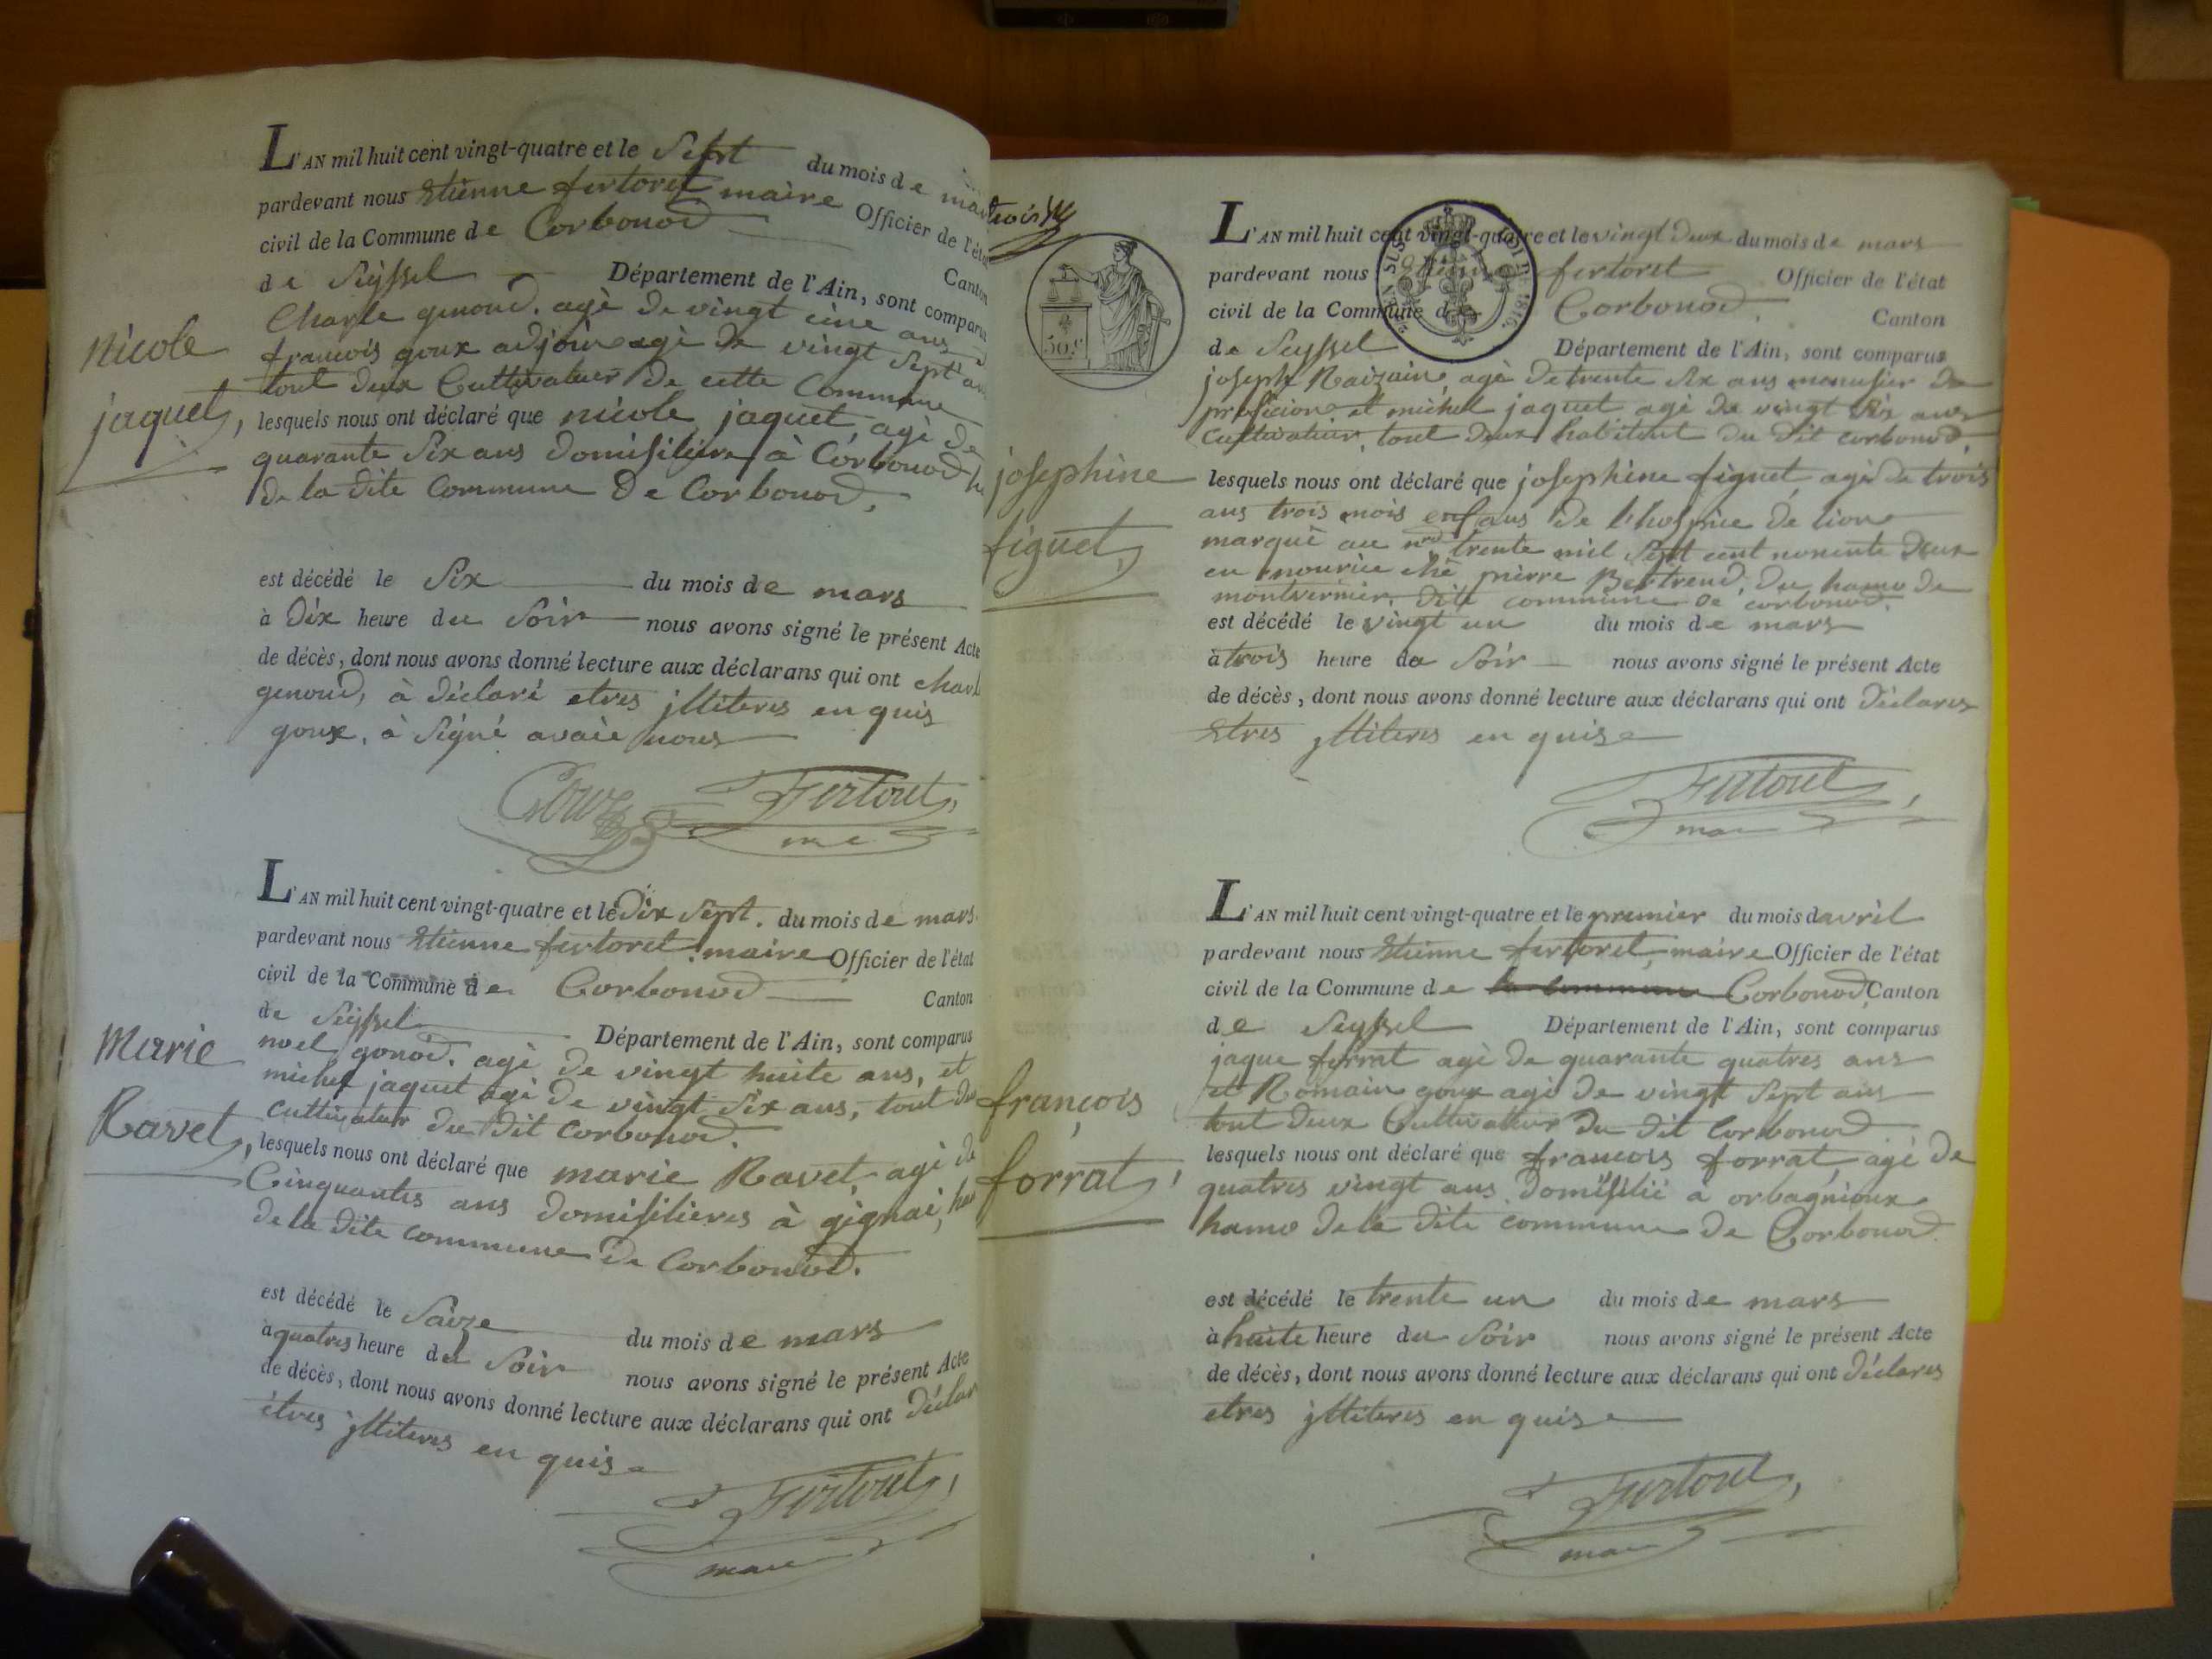 L'AN mil huit cent vingt-quatre et le Sept du mois de mars
pardevant nous Etienne fertoret maire Officier de l'état
civil de la Commune de Corbonod Canton
de Seyssel Département de l'Ain, sont comparus
Charle genoud. agè de vingt cinc ans
francois goux adjoin agè de vingt Sept ans
tout deux Cultivateur de cette Commune
nicole
jaquet,
lesquels nous ont déclaré que nicole jaquet agè de
quarante Six ans domisilière à Corbonod
de la dite Commune De Corbonod,
est décédé le Six du mois de mars
à Dix heure du Soir nous avons signé le présent Acte
de décès, dont nous avons donné lecture aux déclarans qui ont charle
genoud, à déclaré etres jlliteres en quis
goux, à Signé avaie nous
Goux Fertoret,
L'AN mil huit cent vingt-quatre et le Dix Sept. du mois de mars
pardevant nous Etienne fertoret maire Officier de l'état
civil de la Commune de Corbonod Canton
de Seyssel Département de l'Ain, sont comparus
noel gonod. agè de vingt huite ans, et
michel jaquet agè de vingt Six ans, tout
cultivateur du dit Corbonod.
Marie
Ravet,
lesquels nous ont déclaré que marie Ravet agè de
Cinquantes ans domisilières à gignai,
de la dite commune De Corbonod.
est décédé le Saize du mois de mars
à quatres heure du Soir nous avons signé le présent Acte
de décès, dont nous avons donné lecture aux déclarans qui ont déclar
êtres jlliteres en quise
Fertoret,
maire
trois
50.c
LOI DE 1816
L'AN mil huit cent vingt-quatre et le vingt Deux du mois de mars
pardevant nous Etienne fertoret Officier de l'état
civil de la Commune de Corbonod. Canton
de Seyssel Département de l'Ain, sont comparus
joseph Raizain, agè de trente Six ans menusier De
proficione et michel jaquet agè de vingt Six ans
Cultivateur, tout deux habitent du dit corbonod.
josephine
figuet,
lesquels nous ont déclaré que josephine figuet agè de trois
ans trois mois enfans de l'hospice de lion
marquè au nro trente mil Sept cent nonente Deux
en nourice chè pierre Bertrend, du hamo de
montvernier. dite commune de corbonod.
est décédé le vingt un du mois de mars
à trois heure du Soir nous avons signé le présent Acte
de décès, dont nous avons donné lecture aux déclarans qui ont déclares
Etres jlliteres en quise
Fertoret,
maire
L'AN mil huit cent vingt-quatre et le premier du mois davril
pardevant nous Etienne fertoret, maire Officier de l'état
civil de la Commune de la commune Corbonod, Canton
de Seyssel Département de l'Ain, sont comparus
jaque forrat agè de quarante quatres ans
et Romain goux agè De vingt Sept ans
tout deux Cultivateur Du dit Corbonod
françois
forrat,
lesquels nous ont déclaré que francois forrat, agè De
quatres vingt ans domisilié à orbagnioux
hamo De la dite commune De Corbonod.
est décédé le trente un du mois de mars
à huite heure du Soir nous avons signé le présent Acte
de décès, dont nous avons donné lecture aux déclarans qui ont déclares
etres jlliteres en quise
Fertoret,
maire